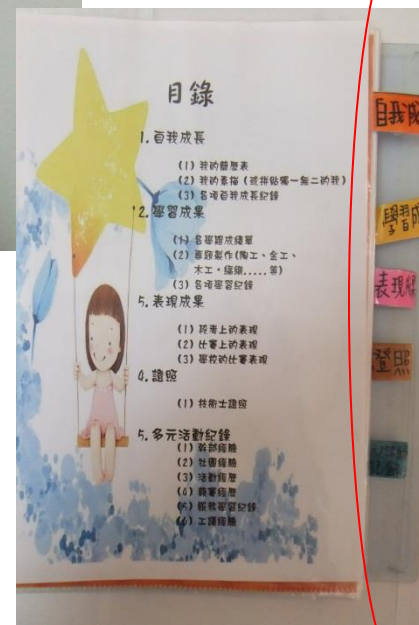 目錄
1. 自我成長
(1) 我的簡歷表
(2) 我的素描 (或拼貼獨一無二的我)
(3) 各項自我成長紀錄
2. 學習成果
(1) 各學期成績單
(2) 專題製作(陶工、金工、
木工、編織.....等)
(3) 各項學習紀錄
5. 表現成果
(1) 段考上的表現
(2) 比賽上的表現
(3) 學校的比賽表現
4. 證照
(1) 技術士證照
5. 多元活動紀錄
(1) 幹部經驗
(2) 社團經驗
(3) 活動經歷
(4) 競賽經歷
(5) 服務學習紀錄
(6) 工讀經驗
自我成
學習成
表現成
證照